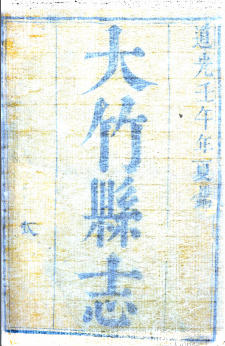 道光壬午年夏鐫
大竹縣志